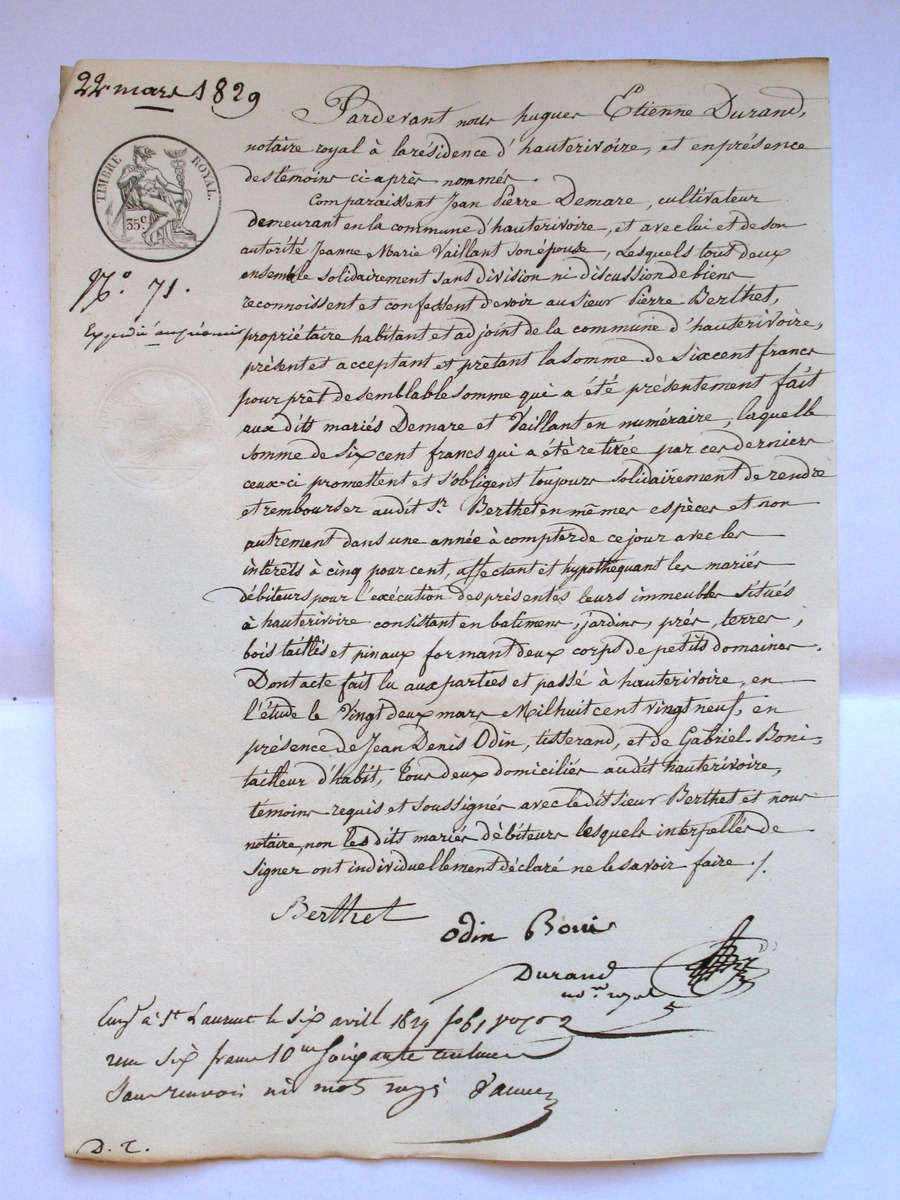 22 mars 1829
TIMBRE ROYAL.
35 c.
N.o 71.
Expédié
Pardevant nous hugues Etienne Durand,
notaire royal à la résidence d'hauterivoire, et en présence
des témoins ci après nommés.
Comparaissent Jean Pierre Demare, cultivateur
demeurant en la commune d'hauterivoire, et avec lui et de son
autorité Jeanne Marie Vaillant son épouse, Lesquels tout deux
ensemble solidairement sans division ni discussion de biens
reconnoissent et confessent devoir au sieur Pierre Berthet,
propriétaire habitant et adjoint de la commune d'hauterivoire,
présent et acceptant et prêtant la somme de six cent francs
pour prêt de semblable somme qui a été présentement fait
aux dits mariés Demare et Vaillant en numéraire, laquelle
somme de six cent francs qui a été retirée par ces derniers
ceux-ci promettent et s'obligent toujours solidairement de rendre
et rembourser audit sr. Berthet en mêmes espèces et non
autrement dans une année à compter de ce jour avec les
intérêts à cinq pour cent, affectant et hypothéquant les mariés
débiteurs pour l'exécution des présentes leurs immeubles situés
à hauterivoire consistant en batimens, jardins, prés, terres,
bois taillis et pinaux formant deux corps de petits domaines.
Dont acte fait lu aux parties et passé à hauterivoire, en
l'étude le Vingt deux mars Mil huit cent vingt neuf, en
présence de Jean Denis Odin, tisserand, et de Gabriel Boni,
tailleur d'habit, Tous deux domiciliés audit hauterivoire,
témoins requis et soussignés avec le dit sieur Berthet et nous
notaire, non les dits mariés débiteurs lesquels interpellés de
signer ont individuellement déclaré ne le savoir faire ./.
Berthet
Odin Boni
Durand
nore. royal
Enrg à St Laurent le six avril 1829 fo 61 vo
reçu six francs 10me soixante centimes
Sans renvoi ni mot rayé
D. T.